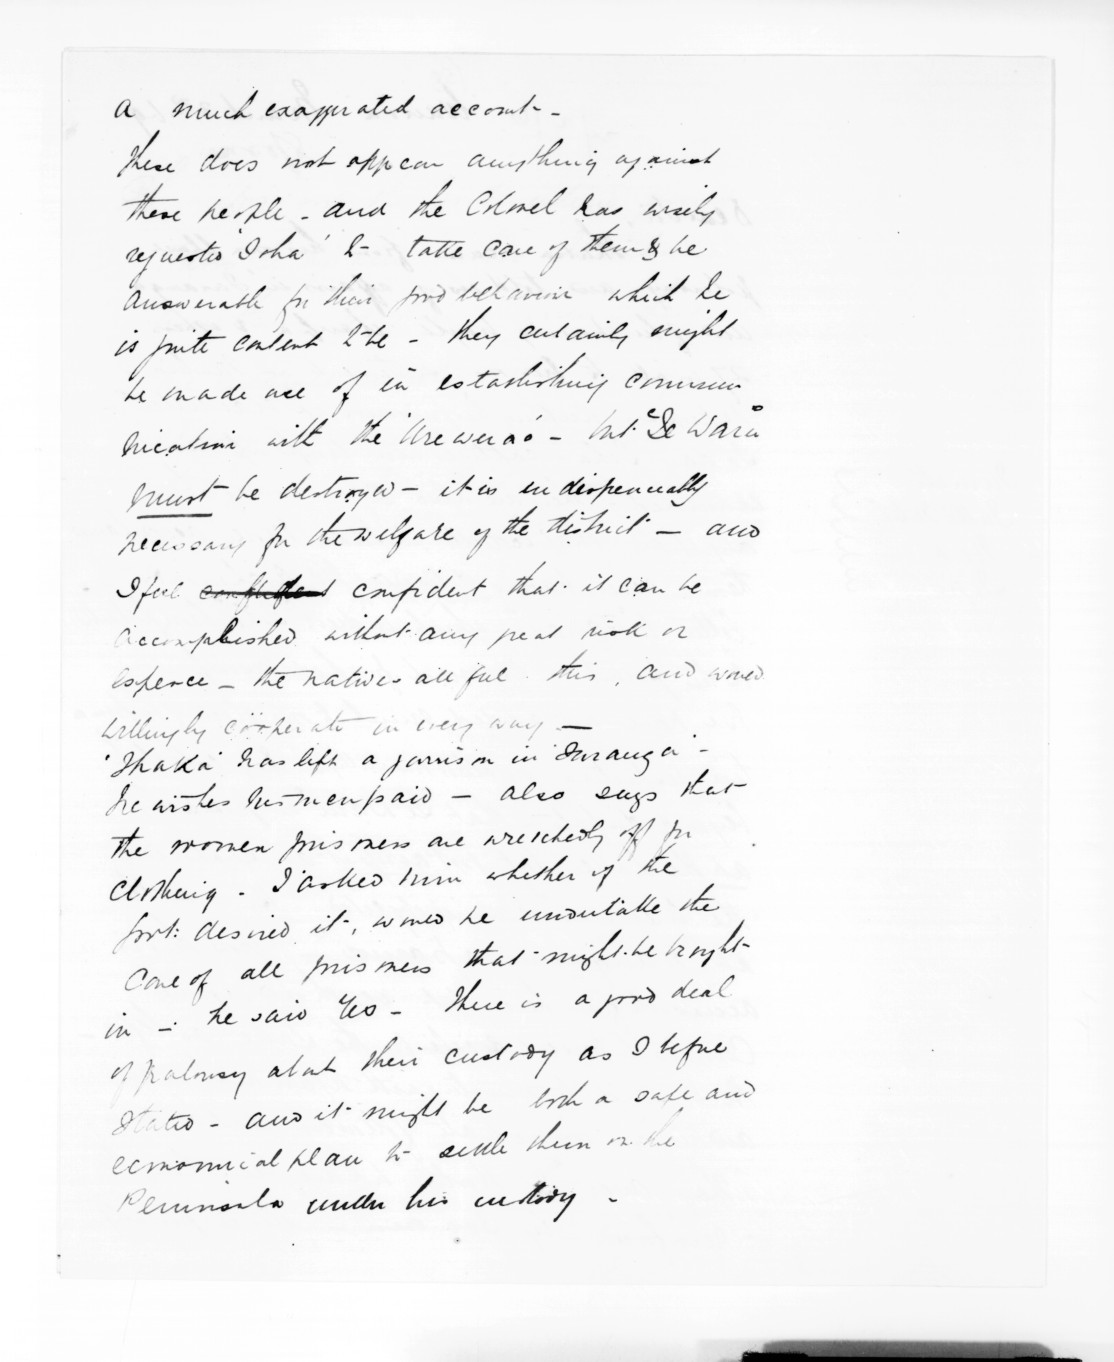 a much exaggerated account -
There does not appear anything against
these people - and the Colonel has wisely
requested 'Ioha' to take care of them & be
answerable for their good behaviour which he
is quite content to be - they certainly might
be made use of in establishing commu-
nication with the 'Urewera's - but "Te Waru"
must be destroyed - it is indispensably
necessary for the welfare of the district - and
I feel confident confident that it can be
accomplished without any great risk or
expence - the natives all feel this, and would
willingly coöperate in every way -
'Ihaka' has left a garrison in 'Turanga' -
he wishes his men paid - also says that
the women prisoners are wretchedly off for
clothing - I asked him whether if the
Govt: desired it, would he undertake the
care of all prisoners that might be brought
in - he said Yes - There is a good deal
of jealousy about their custody as I before
stated - and it might be both a safe and
economical plan to settle them on the
Peninsula under his custody -